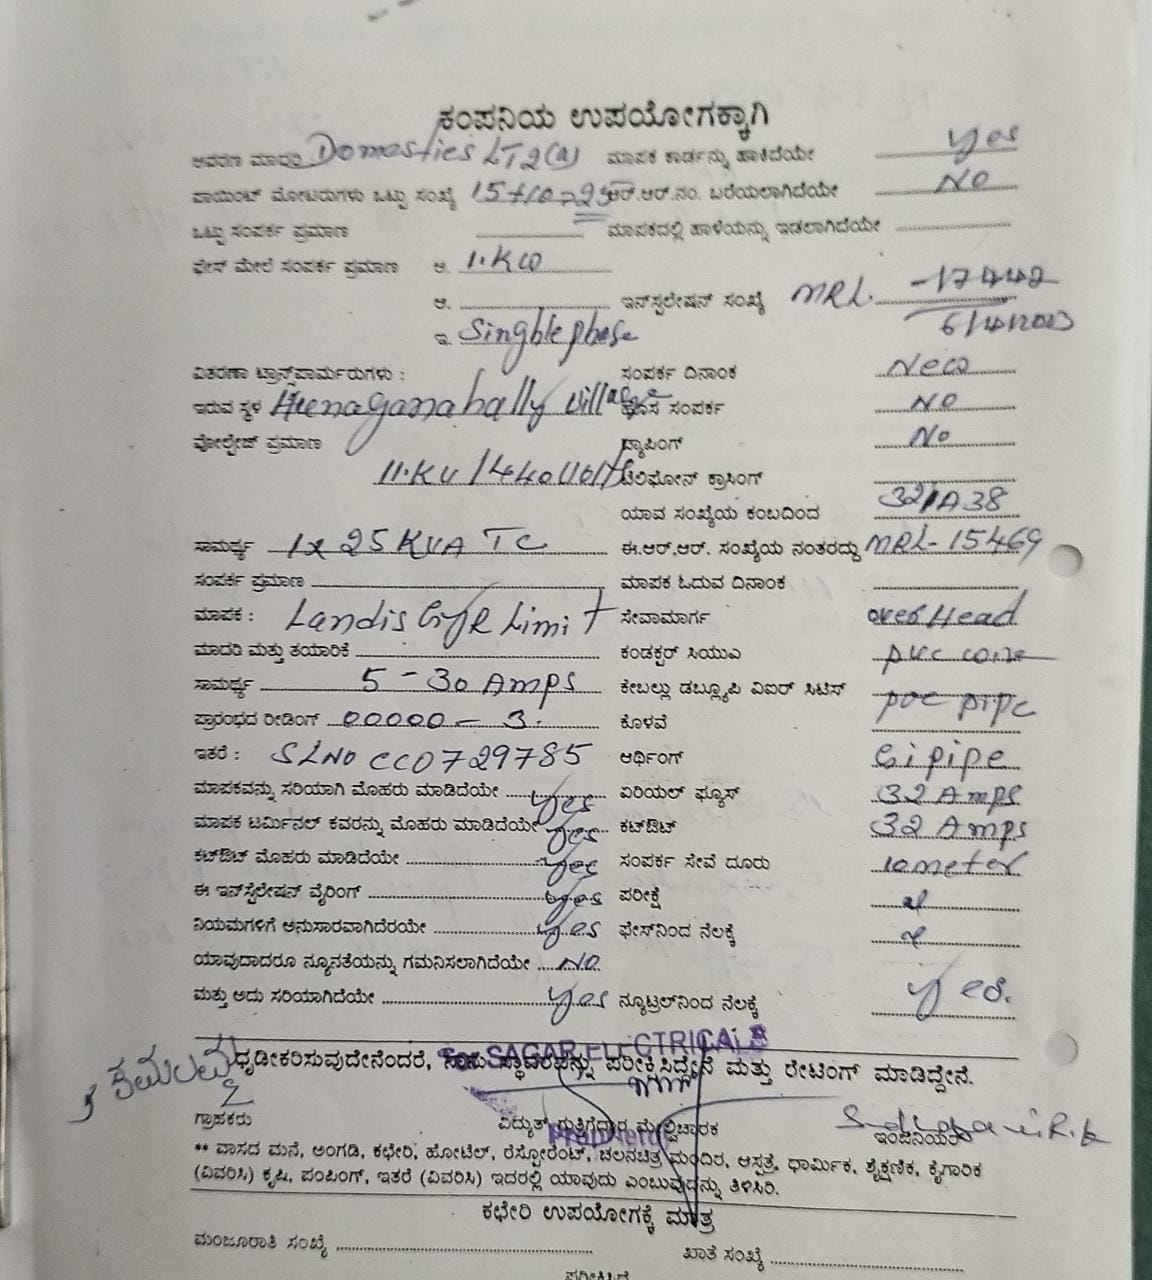 ಕಂಪನಿಯ ಉಪಯೋಗಕ್ಕಾಗಿ
ಆವರಣ ಮಾದರಿ Domestics LT2(a) ಮಾಪಕ ಕಾರ್ಡನ್ನು ಹಾಕಿದೆಯೇ yes
ಪಾಯಿಂಟ್ ಮೋಟರುಗಳು ಒಟ್ಟು ಸಂಖ್ಯೆ 15+10=25 ಆರ್.ಆರ್.ನಂ. ಬರೆಯಲಾಗಿದೆಯೇ NO
ಒಟ್ಟು ಸಂಪರ್ಕ ಪ್ರಮಾಣ ಮಾಪಕದಲ್ಲಿ ಹಾಳೆಯನ್ನು ಇಡಲಾಗಿದೆಯೇ
ಫೇಸ್ ಮೇಲೆ ಸಂಪರ್ಕ ಪ್ರಮಾಣ ಅ. 1.KW
ಆ. ಇನ್‌ಸ್ಟಲೇಷನ್ ಸಂಖ್ಯೆ MRL -17442
ಇ. Singhle phase
ವಿತರಣಾ ಟ್ರಾನ್ಸ್‌ಫಾರ್ಮರುಗಳು : ಸಂಪರ್ಕ ದಿನಾಂಕ New
ಇರುವ ಸ್ಥಳ village ಹೊಸ ಸಂಪರ್ಕ NO
ವೋಲ್ಟೇಜ್ ಪ್ರಮಾಣ ಟ್ಯಾಪಿಂಗ್ No
11.KV /440 volts ಟೆಲಿಫೋನ್ ಕ್ರಾಸಿಂಗ್
ಯಾವ ಸಂಖ್ಯೆಯ ಕಂಬದಿಂದ
ಸಾಮರ್ಥ್ಯ 1x25 KVA TC ಈ.ಆರ್.ಆರ್. ಸಂಖ್ಯೆಯ ನಂತರದ್ದು MRL-15469
ಸಂಪರ್ಕ ಪ್ರಮಾಣ ಮಾಪಕ ಓದುವ ದಿನಾಂಕ
ಮಾಪಕ : Landis Gyr Limit ಸೇವಾಮಾರ್ಗ over Head
ಮಾದರಿ ಮತ್ತು ತಯಾರಿಕೆ ಕಂಡಕ್ಟರ್ ಸಿಯುಎ pvc
ಸಾಮರ್ಥ್ಯ 5 - 30 Amps ಕೇಬಲ್ಲು ಡಬ್ಲ್ಯೂಪಿ ವಿಐಆರ್ ಸಿಟಿಸ್ pvc pipe
ಪ್ರಾರಂಭದ ರೀಡಿಂಗ್ 00000 - 3. ಕೊಳವೆ
ಇತರೆ : SLNO CC0729785 ಆರ್ಥಿಂಗ್ Gi pipe
ಮಾಪಕವನ್ನು ಸರಿಯಾಗಿ ಮೊಹರು ಮಾಡಿದೆಯೇ yes ಏರಿಯಲ್ ಫ್ಯೂಸ್ 32 Amps
ಮಾಪಕ ಟರ್ಮಿನಲ್ ಕವರನ್ನು ಮೊಹರು ಮಾಡಿದೆಯೇ yes ಕಟ್‌ಔಟ್ 32 Amps
ಕಟ್‌ಔಟ್ ಮೊಹರು ಮಾಡಿದೆಯೇ yes ಸಂಪರ್ಕ ಸೇವೆ ದೂರು 10 meter
ಈ ಇನ್‌ಸ್ಟಲೇಷನ್ ವೈರಿಂಗ್ yes ಪರೀಕ್ಷೆ
ನಿಯಮಗಳಿಗೆ ಅನುಸಾರವಾಗಿದೆರೆಯೇ yes ಫೇಸ್‌ನಿಂದ ನೆಲಕ್ಕೆ
ಯಾವುದಾದರೂ ನ್ಯೂನತೆಯನ್ನು ಗಮನಿಸಲಾಗಿದೆಯೇ NO
ಮತ್ತು ಅದು ಸರಿಯಾಗಿದೆಯೇ yes ನ್ಯೂಟ್ರಲ್‌ನಿಂದ ನೆಲಕ್ಕೆ yes.
For SAGAR ELECTRICALS
ಧೃಡೀಕರಿಸುವುದೇನೆಂದರೆ, ನಾನು ಸ್ಥಾವರವನ್ನು ಪರೀಕ್ಷಿಸಿದ್ದೇನೆ ಮತ್ತು ರೇಟಿಂಗ್ ಮಾಡಿದ್ದೇನೆ.
ಗ್ರಾಹಕರು ವಿದ್ಯುತ್ ಗುತ್ತಿಗೆದಾರ ಮೇಲ್ವಿಚಾರಕ ಇಂಜಿನಿಯರ್
Proprietor
** ವಾಸದ ಮನೆ, ಅಂಗಡಿ, ಕಛೇರಿ, ಹೋಟೆಲ್, ರೆಸ್ಟೋರೆಂಟ್, ಚಲನಚಿತ್ರ ಮಂದಿರ, ಆಸ್ಪತ್ರೆ, ಧಾರ್ಮಿಕ, ಶೈಕ್ಷಣಿಕ, ಕೈಗಾರಿಕ
(ವಿವರಿಸಿ) ಕೃಷಿ, ಪಂಪಿಂಗ್, ಇತರೆ (ವಿವರಿಸಿ) ಇದರಲ್ಲಿ ಯಾವುದು ಎಂಬುವುದನ್ನು ತಿಳಿಸಿರಿ.
ಕಛೇರಿ ಉಪಯೋಗಕ್ಕೆ ಮಾತ್ರ
ಮಂಜೂರಾತಿ ಸಂಖ್ಯೆ ಖಾತೆ ಸಂಖ್ಯೆ